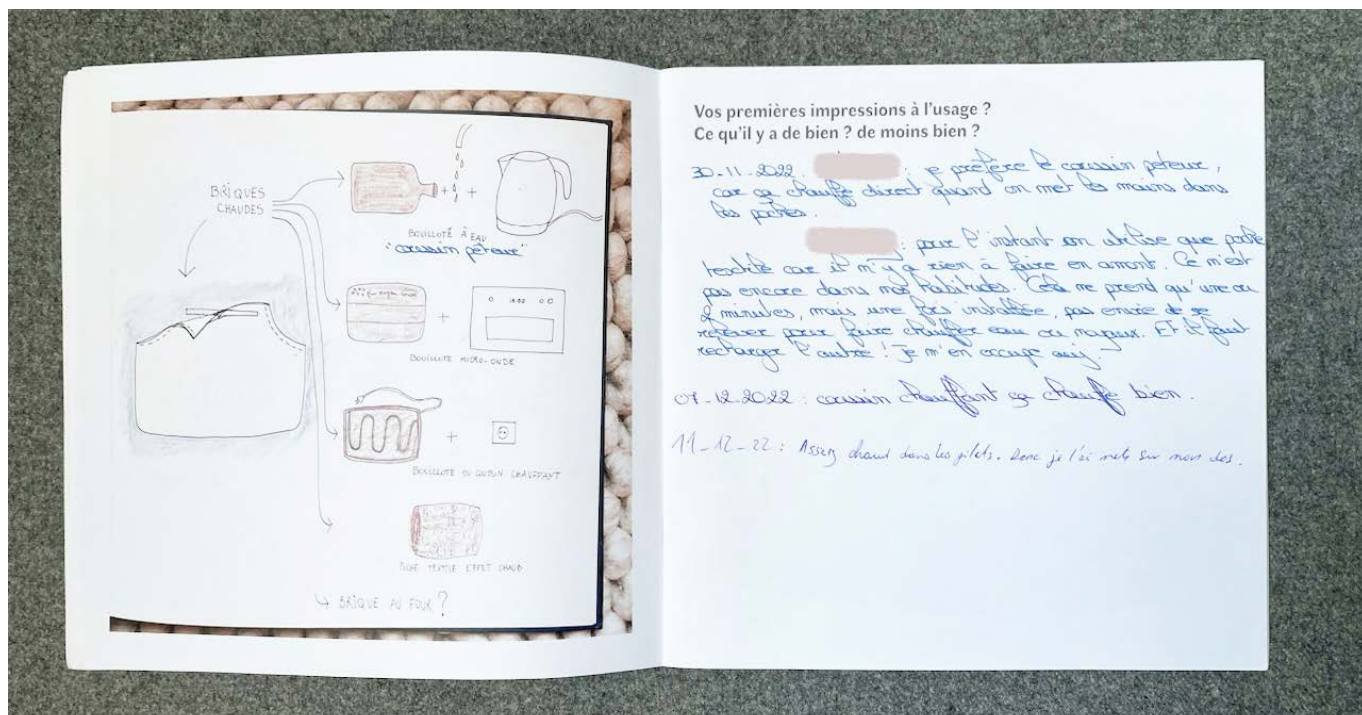 BRIQUES
CHAUDES
BOUILLOTE À EAU
"coussin péteur"
BOUILLOTE MICRO-ONDE
BOUILLOTE OU COUSSIN CHAUFFANT
POCHE TEXTILE EFFET CHAUD
↳ BRIQUE AU FOUR ?
Vos premières impressions à l'usage ?
Ce qu'il y a de bien ? de moins bien ?
30-11-2022. : je préfère le coussin péteur,
car ça chauffe direct quand on met les mains dans
les poches.
: pour l'instant on utilise que poche
textile car il n'y a rien à faire en amont. Ce n'est
pas encore dans nos habitudes. Cela ne prend qu'une ou
2 minutes, mais une fois installée, pas envie de se
relever pour faire chauffer eau ou noyaux. Et il faut
recharger l'autre ! Je m'en occupe auj.
07-12-2022 : coussin chauffant ça chauffe bien.
11-12-22 : Assez chaud dans les gilets. Donc je l'ai mets sur mon dos.